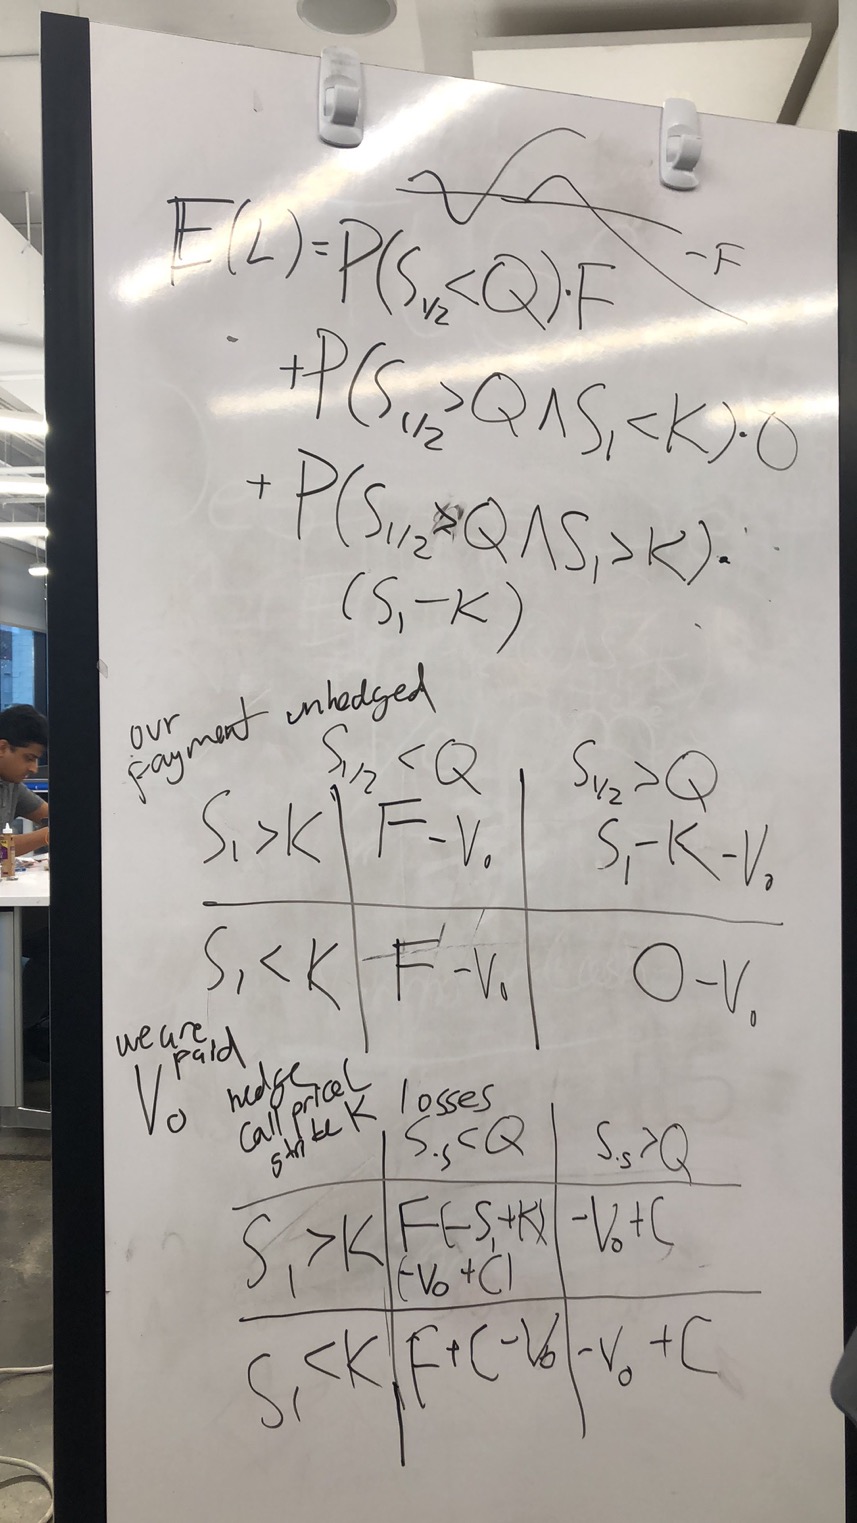 -F
E(L)=P(S1/2<Q)·F
+P(S1/2>Q∧S1<K)·0
+P(S1/2>Q∧S1>K)·
(S1-K)
our payment unhedged
S1/2<Q S1/2>Q
S1>K F-V0 S1-K-V0
S1<K F-V0 0-V0
we are paid
V0 hedge losses
call price C
strike K
S.5<Q S.5>Q
S1>K F(-S1+K) -V0+C
(-V0+C)
S1<K F+C-V0 -V0+C